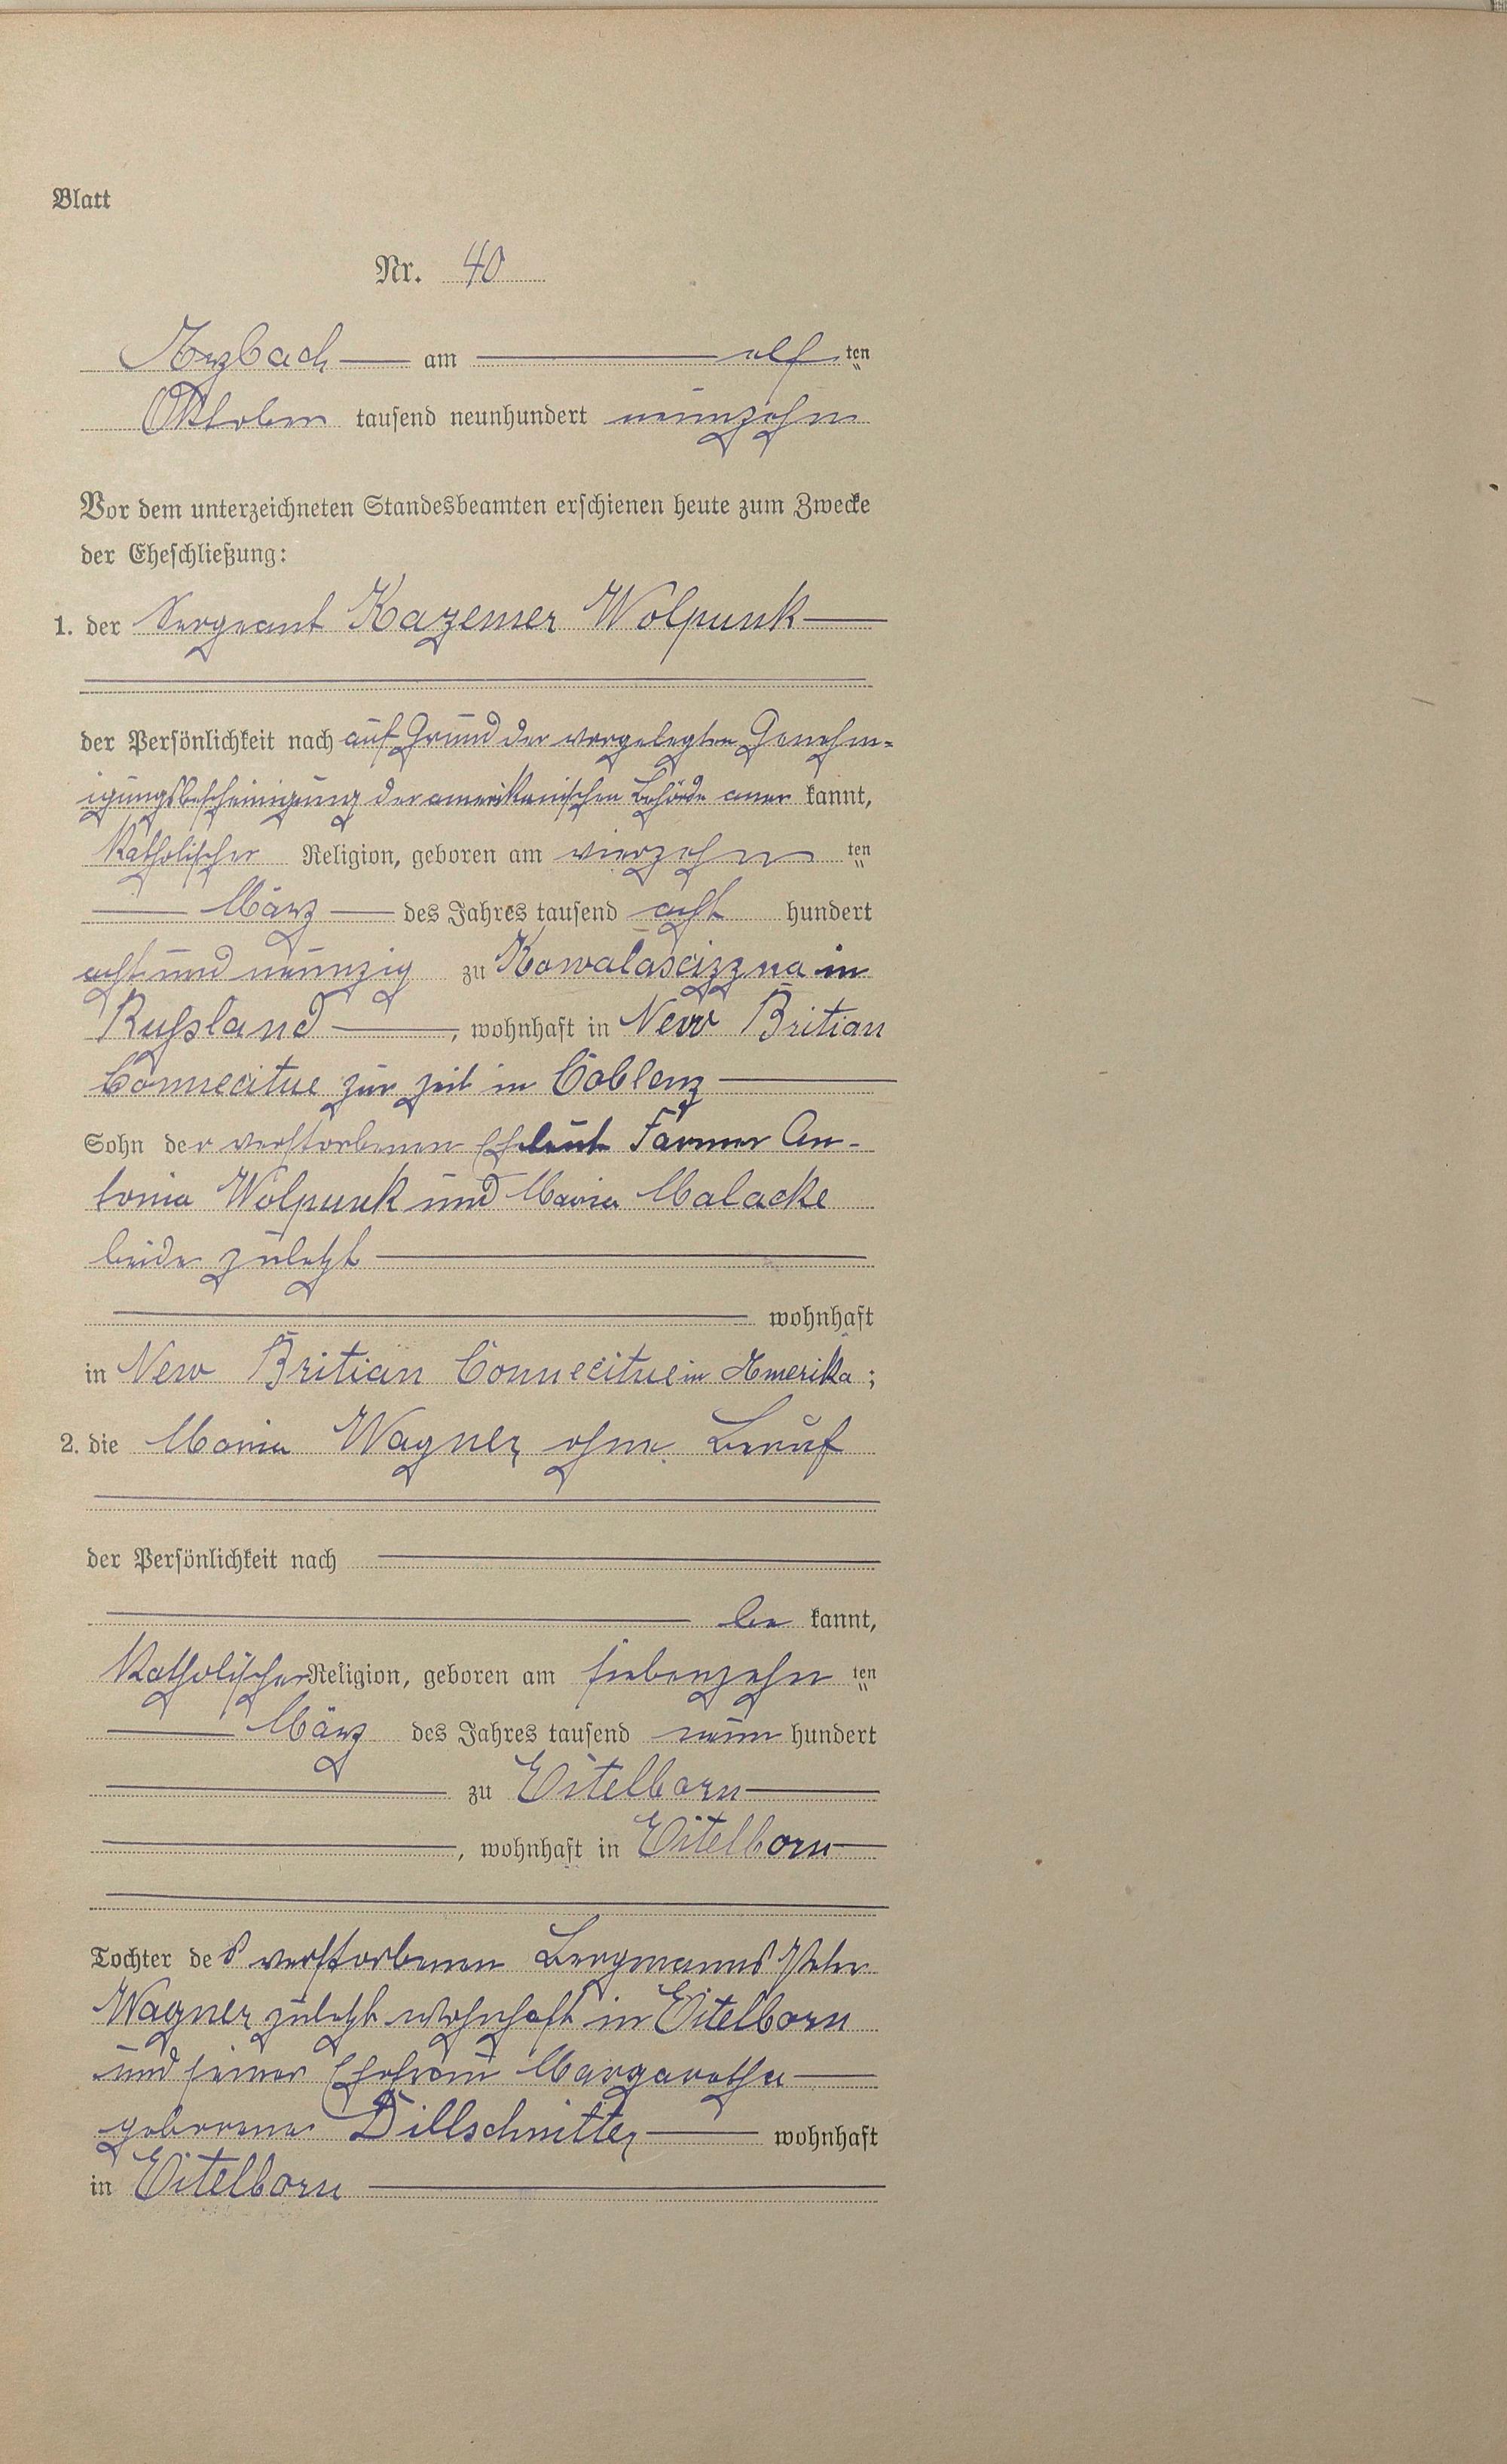 Blatt
Nr. 40
Arzbach am elf ten
Oktober tausend neunhundert neunzehn
Vor dem unterzeichneten Standesbeamten erschienen heute zum Zwecke
der Eheschließung:
1. der Sergeant Kazemer Wolpunk
der Persönlichkeit nach auf Grund der vorgelegten Genehm-
igungsbescheinigung der amerikanischen Behörde aner kannt,
katholischer Religion, geboren am vierzehn ten
März des Jahres tausend acht hundert
acht und neunzig zu Kowalascizzna in
Rußland, wohnhaft in New Britian
Connecitue zur Zeit in Coblenz
Sohn der verstorbenen Eheleute Farmer An-
tonia Wolpunk und Maria Malacke
beide zuletzt
wohnhaft
in New Britian Connecitue in Amerika;
2. die Maria Wagner, ohne Beruf
der Persönlichkeit nach
be kannt,
katholischer Religion, geboren am siebenzehn ten
März des Jahres tausend neun hundert
zu Eitelborn
, wohnhaft in Eitelborn
Tochter des verstorbenen Bergmanns Peter
Wagner zuletzt wohnhaft in Eitelborn
und seiner Ehefrau Margaretha
geborene Dillschnitter wohnhaft
in Eitelborn